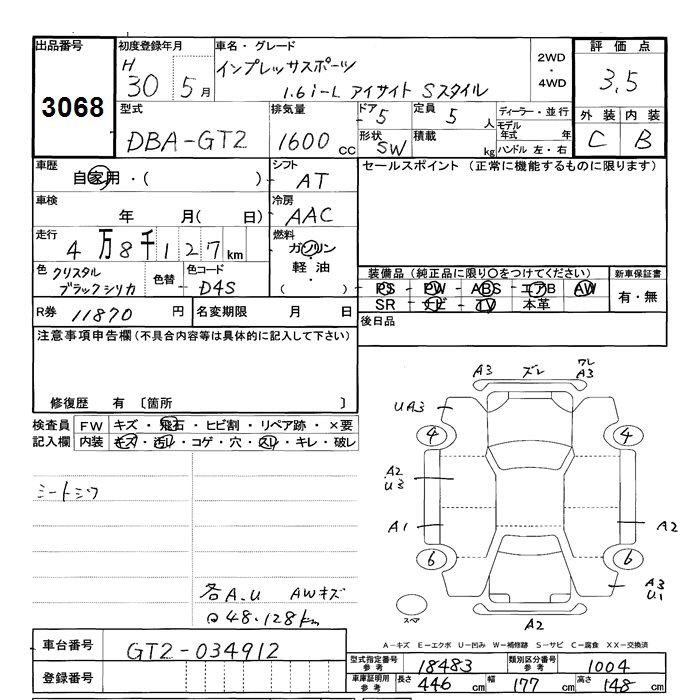 出品番号
3068
初度登録年月
H 30 5 月
車名・グレード
インプレッサスポーツ
1.6i-L アイサイト Sスタイル
2WD
・
4WD
評価点
3.5
外装 内装
C B
型式
DBA-GT2
排気量
1600 cc
ドア 5
形状 SW
定員 5 人
積載 kg
ディーラー・並行
モデル年式 年
ハンドル 左・右
車歴
自家用・( )
シフト
AT
セールスポイント (正常に機能するものに限ります)
車検
年 月( 日)
冷房
AAC
走行
4万8千127 km
燃料
ガソリン
・
軽油
( )
色 クリスタル
ブラックシリカ
色替
色コード
D4S
装備品 (純正品に限り○をつけてください)
PS PW ABS エアB AW
SR ナビ TV 本革
新車保証書
有・無
R券 11870 円
名変期限 月 日
後日品
注意事項申告欄(不具合内容等は具体的に記入して下さい)
修復歴 有 〔箇所 〕
検査員
記入欄
FW キズ・飛石・ヒビ割・リペア跡・×要
内装 キズ・汚レ・コゲ・穴・スレ・キレ・破レ
シートシワ
各A.U AWキズ
ロ48.128km
A3 ズレ ワレ
A3
UA3
4 4
A2
U3
A1
A2
6 6
A3
U1
スペア
A2
A-キズ E-エクボ U-凹み W-補修跡 S-サビ C-腐食 XX-交換済
車台番号
GT2-034912
登録番号
型式指定番号
参考
18483
類別区分番号
参考
1004
車庫証明用
参考
長さ 446 cm 幅 177 cm 高さ 148 cm